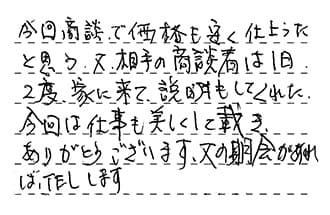 今回商談で価格も安く仕上った
と思う.又.相手の商談者は1日.
2度.家に来て.説明もしてくれた.
今回は仕事も美しくして載き.
ありがとうございます、又の期会があれ
ば、TELします